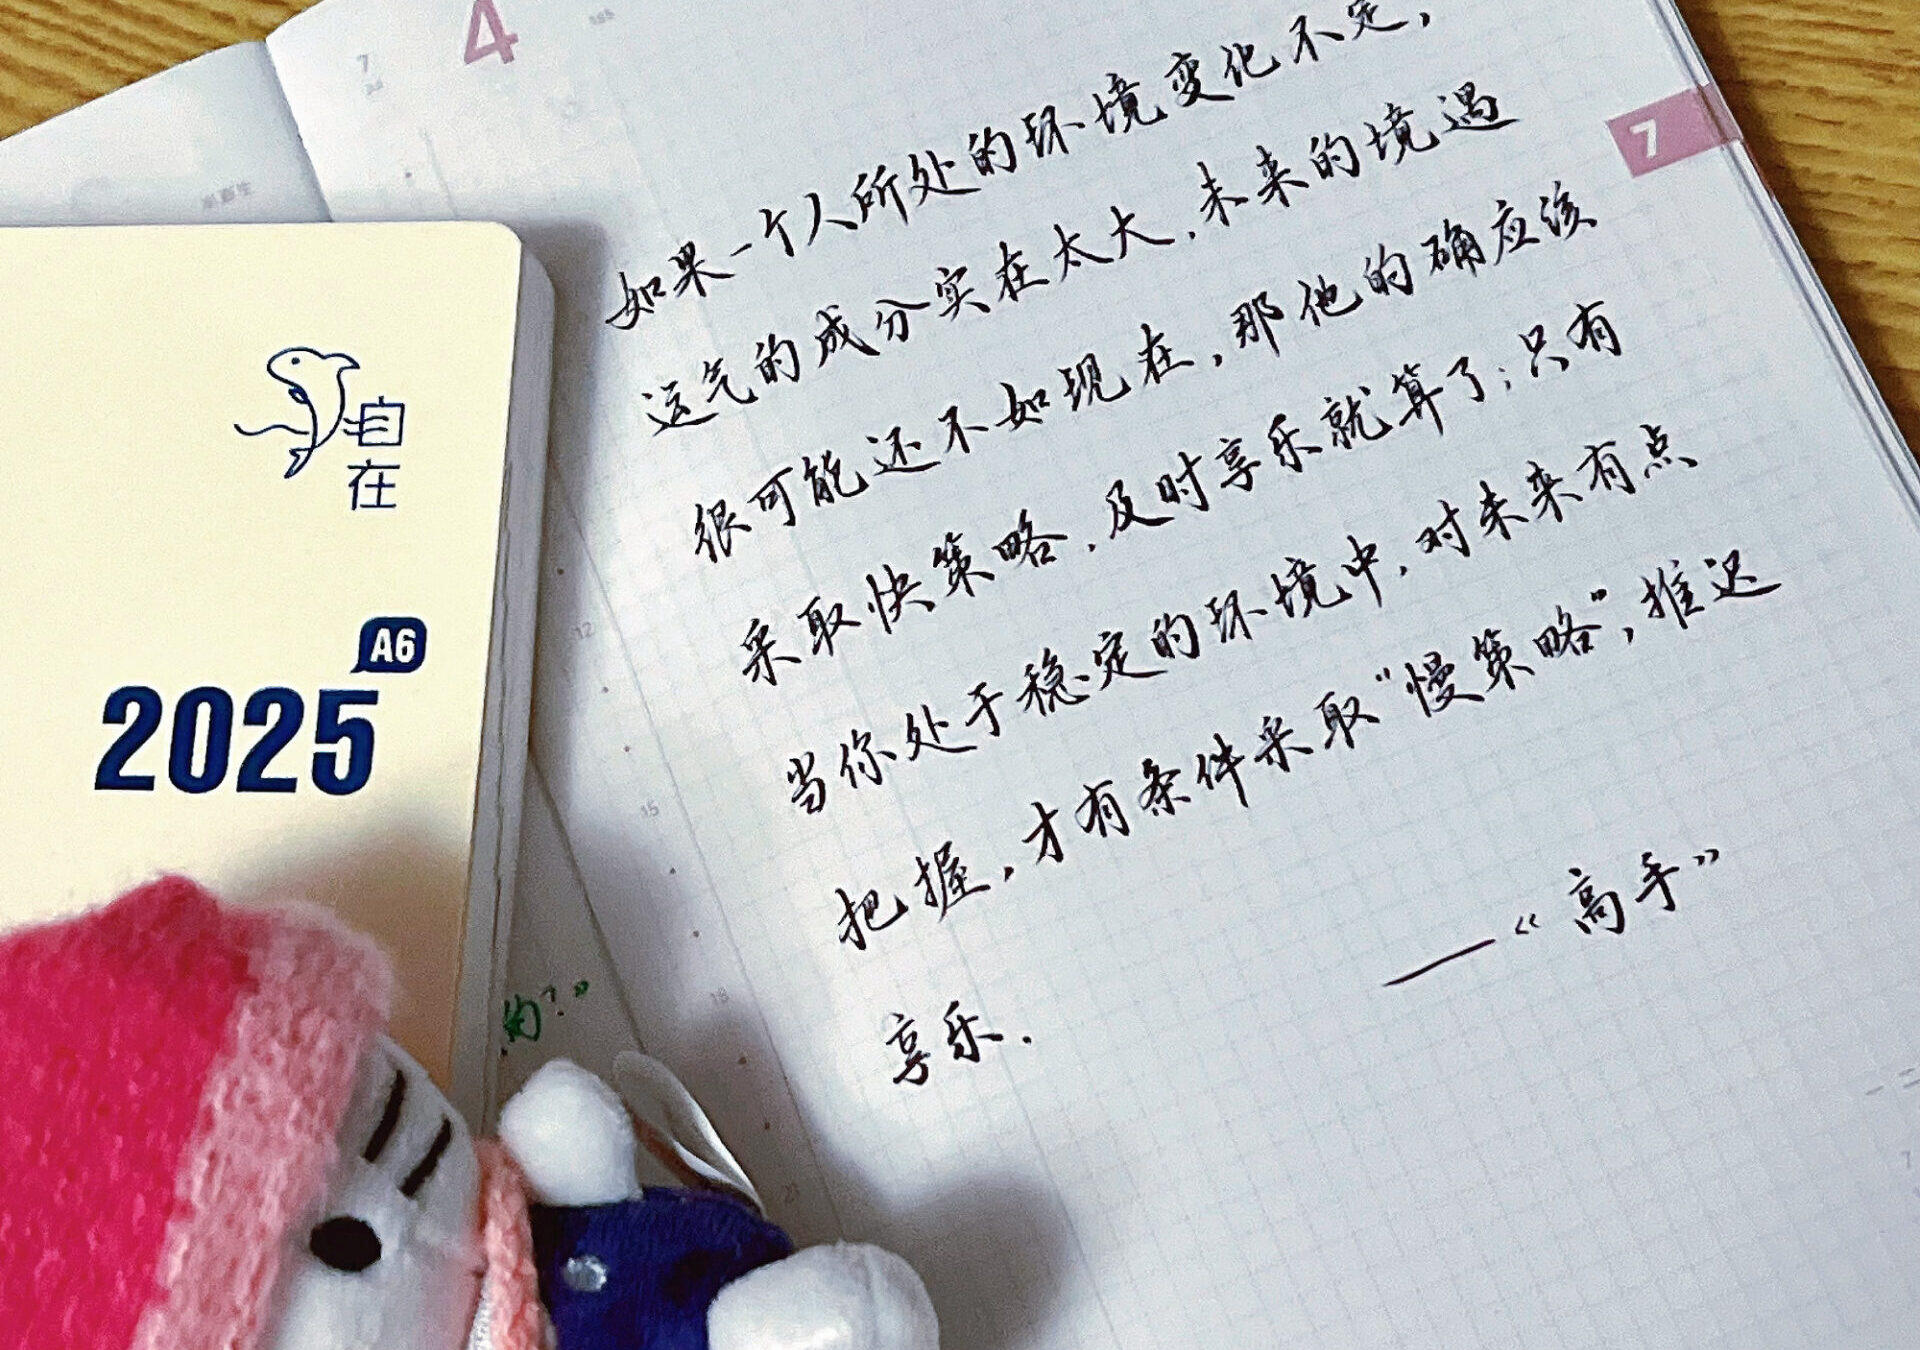 4
7
如果一个人所处的环境变化不定，
运气的成分实在太大，未来的境遇
很可能还不如现在，那他的确应该
采取快策略，及时享乐就算了；只有
当你处于稳定的环境中，对未来有点
把握，才有条件采取“慢策略”，推迟
享乐.
——《高手》
7
自
在
A6
2025
12
15
18
21